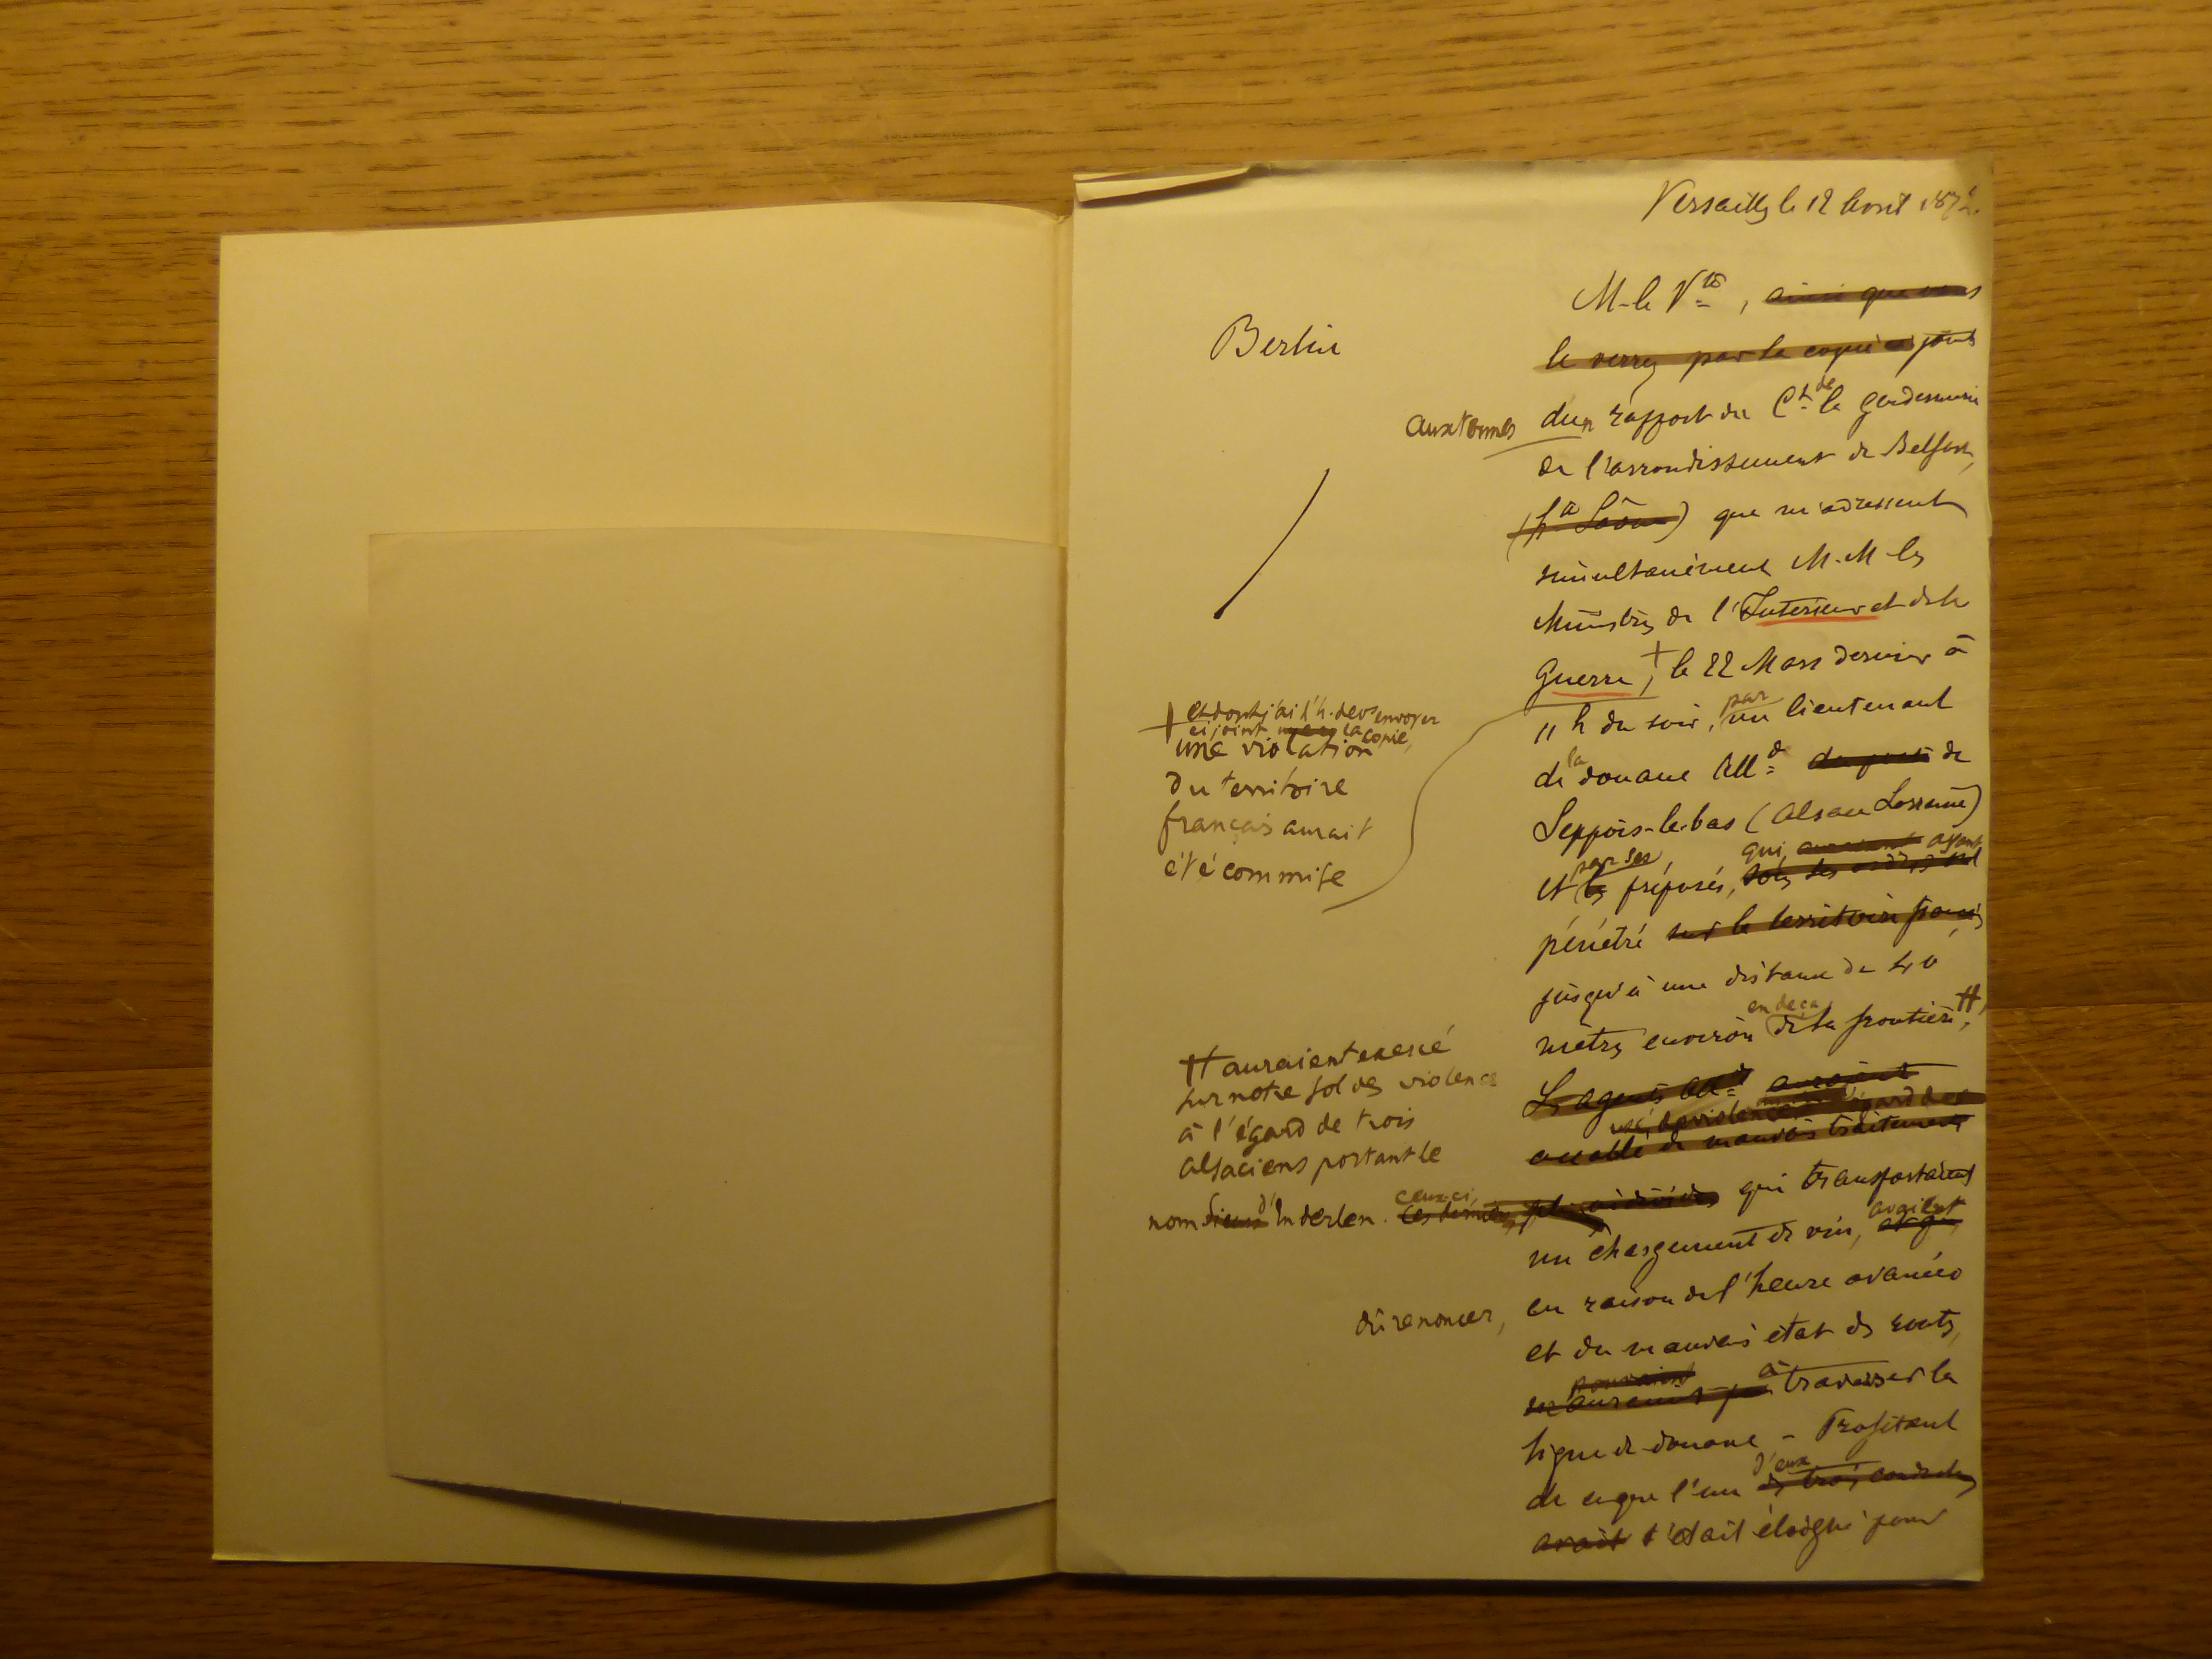 Versailles le 12 Avril 1872.
Berlin
M. le Vte, ainsi que vous
le verrez par la copie ci jointe
aux termes d'un rapport du Ct de la gendarmerie
de l'arrondissement de Belfort,
(hte Saône) que m'adressent
simultanément M.M. les
Ministres de l'Intérieur et de la
Guerre, + le 22 Mars dernier à
11 h du soir, par un lieutenant
de la douane Allde de
Seppois-le-bas (Alsace Lorraine)
et par ses préposés, qui, auraient ayant
pénétré sur le territoire français
jusqu'à une distance de 40
mètres environ en deça de la frontière, ++
+ et dont j'ai l'h. de vs envoyer
ci joint la copie,
une violation
du territoire
français aurait
été commise
Les agents Allds auraient
usé de violence à l'égard de
accablé de mauvais traitements
++ auraient exercé
sur notre sol des violences
à l'égard de trois
alsaciens portant le
nom d'Inderlen. ceux-ci, ces derniers, qui transportaient
un chargement de vin, avaient
en raison de l'heure avancée
et du mauvais état des routes,
dû renoncer,
pouvaient
à traverser la
ligne de douane. - Profitant
de ce que l'un d'eux des trois conducteurs
avait s'était éloigné pour